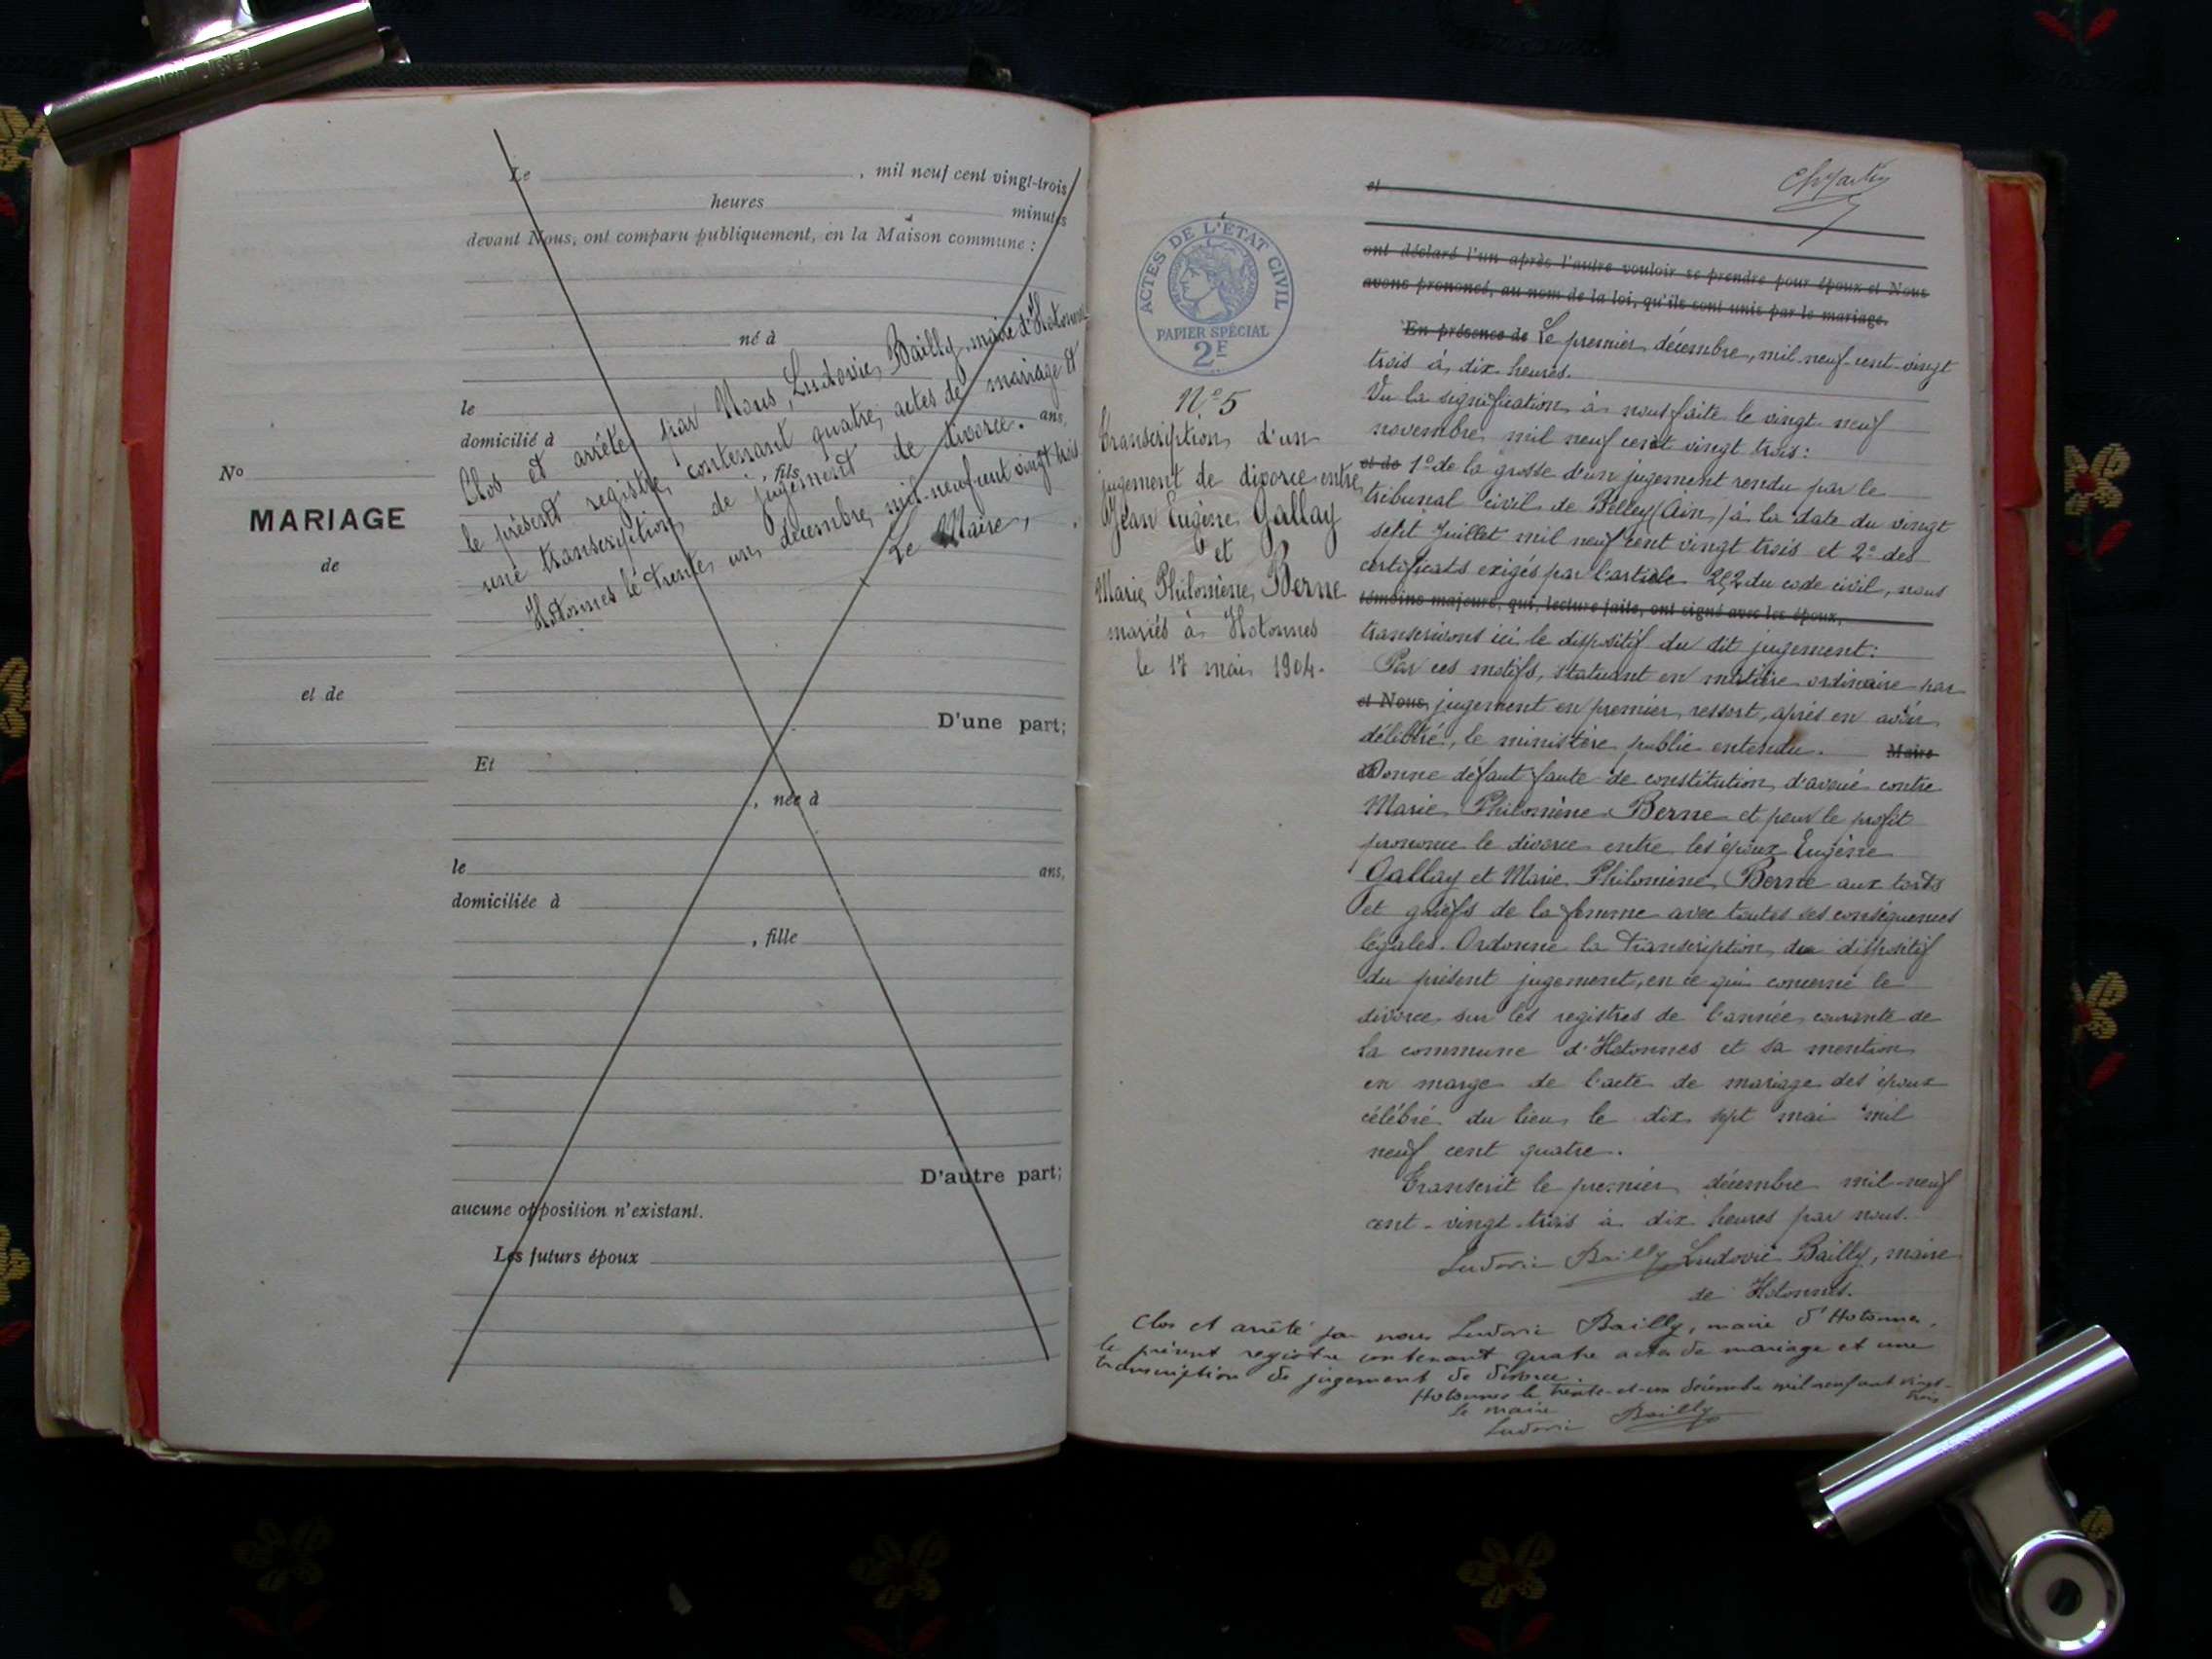 Le , mil neuf cent vingt-trois
heures minutes
devant Nous, ont comparu publiquement, en la Maison commune :
né à
le ans,
domicilié à
, fils
Clos et arrêté par Nous, Ludovic Bailly, maire d'Hotonnes
le présent registre contenant quatre actes de mariage et
une transcription de jugement de divorce.
Hotonnes le trente un décembre mil-neuf-cent vingt trois
Le Maire,
No
MARIAGE
de
et de
D'une part;
Et
, née à
le ans,
domiciliée à
, fille
D'autre part;
aucune opposition n'existant.
Les futurs époux
ACTES DE L'ÉTAT CIVIL
PAPIER SPÉCIAL
2F
N° 5
Transcription d'un
jugement de divorce entre
Jean Eugène Gallay
et
Marie Philomène Berne
mariés à Hotonnes
le 17 mai 1904.
et
ont déclaré l'un après l'autre vouloir se prendre pour époux et Nous
avons prononcé, au nom de la loi, qu'ils sont unis par le mariage.
En présence de Le premier décembre, mil-neuf-cent-vingt
trois à dix heures.
Vu la signification à nous faite le vingt-neuf
novembre mil neuf cent vingt trois :
et de 1° de la grosse d'un jugement rendu par le
tribunal civil de Belley (Ain) à la date du vingt
sept Juillet mil neuf cent vingt trois et 2° des
certificats exigés par l'article 252 du code civil, nous
témoins majeurs, qui, lecture faite, ont signé avec les époux,
transcrivons ici le dispositif du dit jugement :
Par ces motifs, statuant en matière ordinaire par
et Nous, jugement en premier ressort, après en avoir
délibéré, le ministère public entendu. Maire
Donne défaut faute de constitution d'avoué contre
Marie Philomène Berne et pour le profit
prononce le divorce entre les époux Eugène
Gallay et Marie Philomène Berne aux torts
et griefs de la femme avec toutes ses conséquences
légales. Ordonne la transcription du dispositif
du présent jugement, en ce qui concerne le
divorce sur les registres de l'année courante de
la commune d'Hotonnes et sa mention
en marge de l'acte de mariage des époux
célébré du lieu le dix sept mai mil
neuf cent quatre.
Transcrit le premier décembre mil-neuf
cent-vingt-trois à dix heures par nous.
Ludovic Bailly Ludovic Bailly, maire
de Hotonnes.
Clos et arrêté par nous Ludovic Bailly, maire d'Hotonnes,
le présent registre contenant quatre actes de mariage et une
transcription de jugement de divorce.
Hotonnes le trente-et-un décembre mil neuf cent vingt-
trois
Le maire
Ludovic Bailly